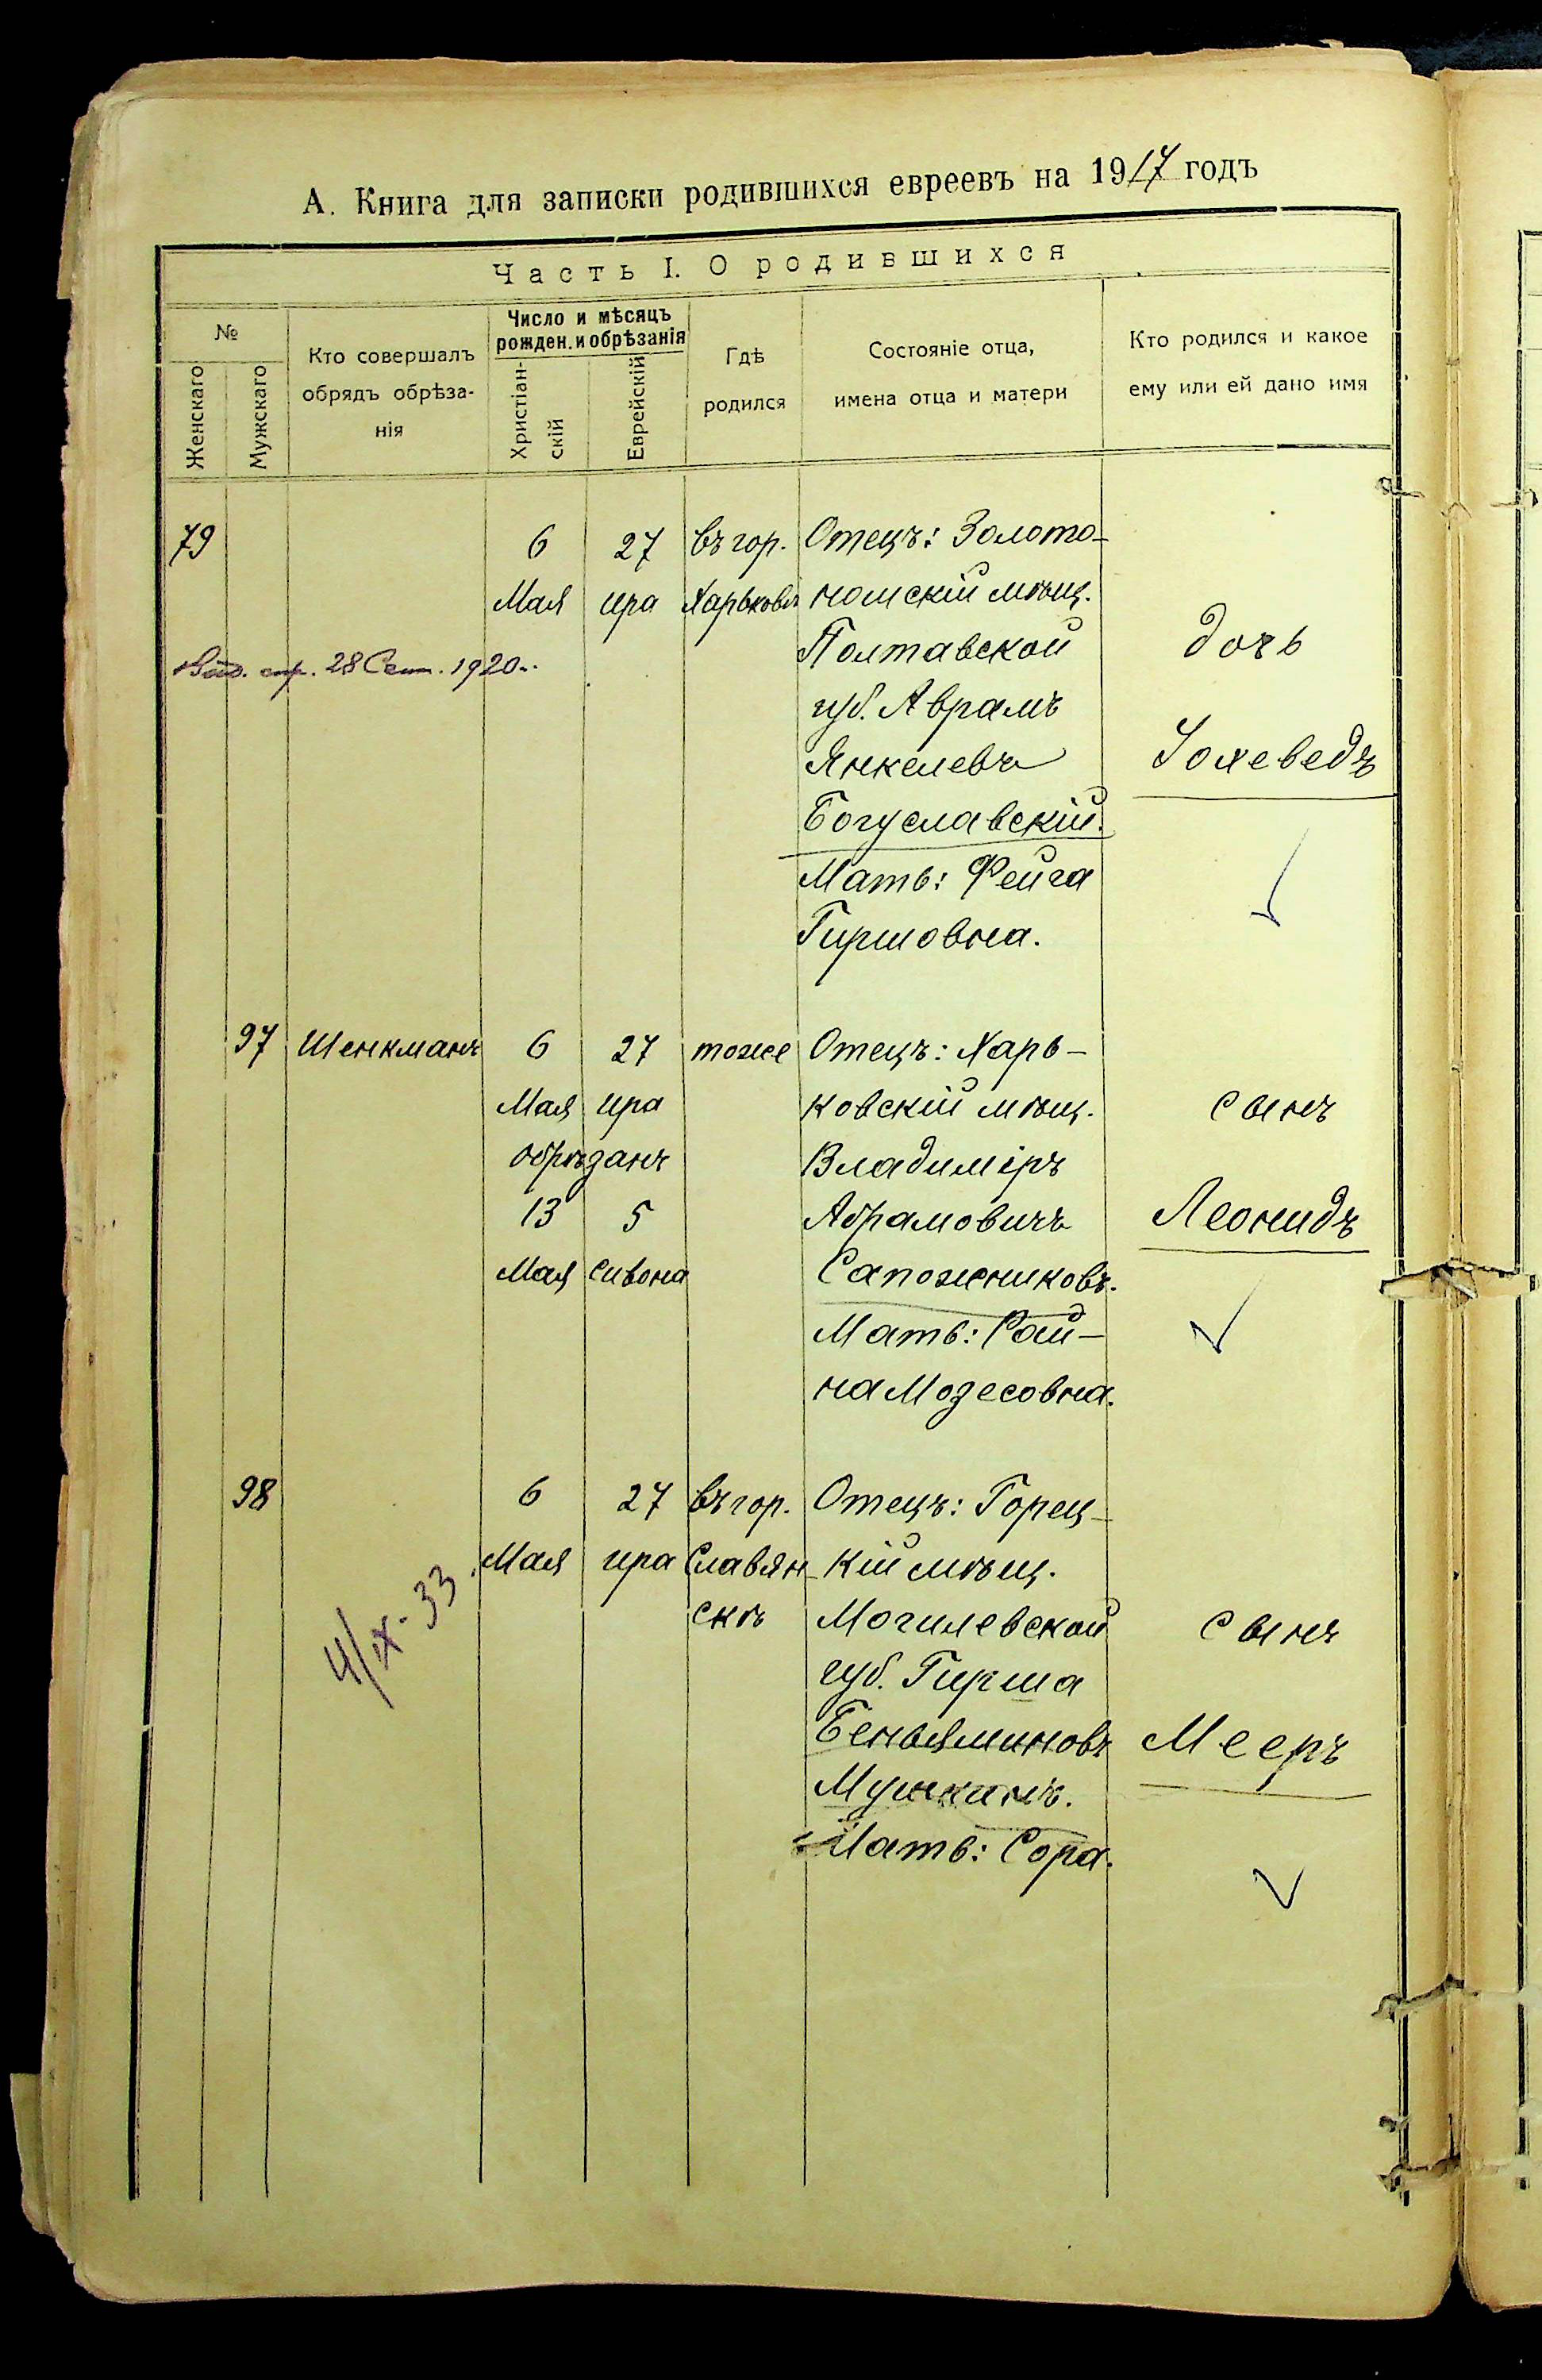 А. Книга для записки родившихся евреевъ на 1917 годъ
Часть I. О родившихся
№
Женскаго
Мужскаго
Кто совершалъ
обрядъ обрѣза-
нія
Число и мѣсяцъ
рожден. и обрѣзанія
Христіан-
скій
Еврейскій
Гдѣ
родился
Состояніе отца,
имена отца и матери
Кто родился и какое
ему или ей дано имя
79
6
Мая
27
ира
въ гор.
Харьковѣ
Отецъ: Золото-
ношскій мѣщ.
Полтавской
губ. Аврамъ
Янкелевъ
Богуславскій.
Мать: Фейга
Гиршовна.
дочь
Іохеведъ
Выд. спр. 28 Сент. 1920.
97
Шенкманъ
6
Мая
27
ира
обрѣзанъ
13
Мая
5
Сивона
тоже
Отецъ: Харь-
ковскій мѣщ.
Владиміръ
Абрамовичъ
Сапожниковъ.
Мать: Рай-
на Мозесовна.
сынъ
Леонидъ
98
4/IX-33
6
Мая
27
ира
въ гор.
Славян-
скѣ
Отецъ: Горец-
кій мѣщ.
Могилевской
губ. Гирша
Беньяминовъ
Мать: Сора.
сынъ
Мееръ